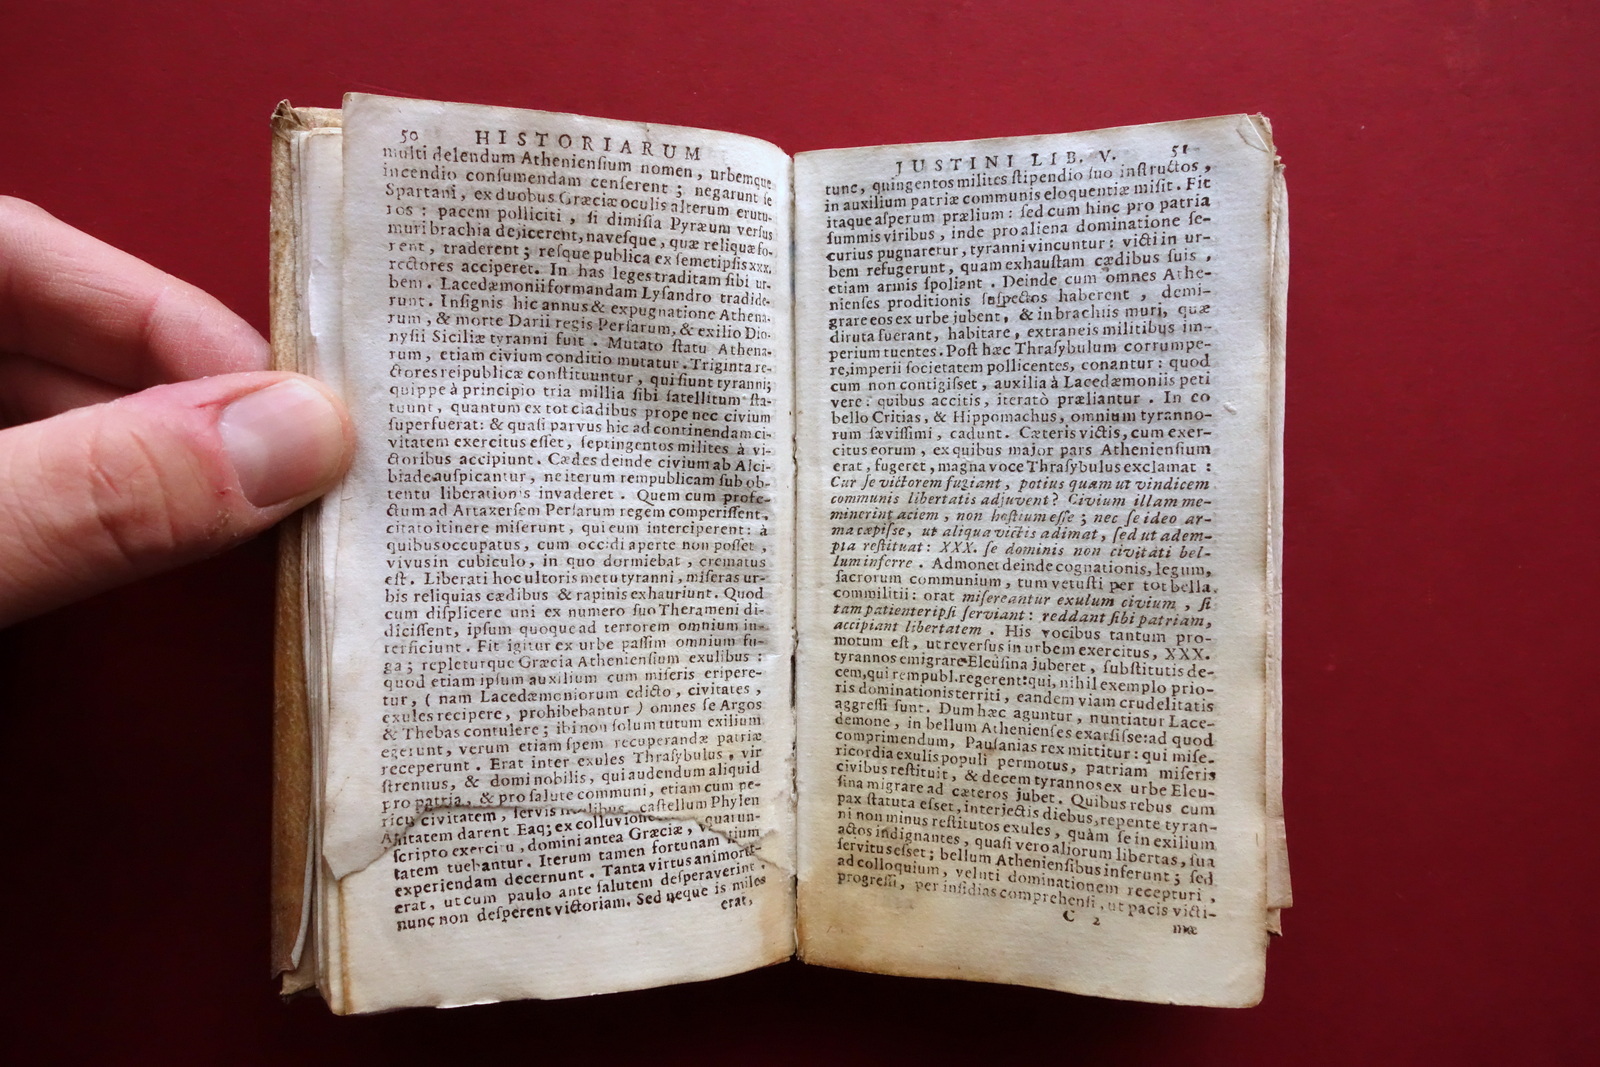 50 HISTORIARUM
multi delendum Atheniensium nomen, urbemque
incendio consumendam censerent; negarunt se
Spartani, ex duobus Græciæ oculis alterum erutu-
ros: pacem polliciti, si dimissa Pyræum versus
muri brachia dejicerent, navesque, quæ reliquæ fo-
rent, traderent; resque publica ex semetipsis xxx.
rectores acciperet. In has leges traditam sibi ur-
bem. Lacedæmonii formandam Lysandro tradide-
runt. Insignis hic annus & expugnatione Athena-
rum, & morte Darii regis Persarum, & exilio Dio-
nysii Siciliæ tyranni fuit. Mutato statu Athena-
rum, etiam civium conditio mutatur. Triginta re-
ctores reipublicæ constituuntur, qui fiunt tyranni;
quippe à principio tria millia sibi satellitum sta-
tuunt, quantum ex tot cladibus prope nec civium
superfuerat: & quasi parvus hic ad continendam ci-
vitatem exercitus esset, septingentos milites à vi-
ctoribus accipiunt. Cædes deinde civium ab Alci-
biade auspicantur, ne iterum rempublicam sub ob-
tentu liberationis invaderet. Quem cum profe-
ctum ad Artaxersem Persarum regem comperissent,
citato itinere miserunt, qui eum interciperent: à
quibus occupatus, cum occidi aperte non posset,
vivus in cubiculo, in quo dormiebat, crematus
est. Liberati hoc ultoris metu tyranni, miseras ur-
bis reliquias cædibus & rapinis exhauriunt. Quod
cum displicere uni ex numero suo Therameni di-
dicissent, ipsum quoque ad terrorem omnium in-
terficiunt. Fit igitur ex urbe passim omnium fu-
ga; repleturque Græcia Atheniensium exulibus:
quod etiam ipsum auxilium cum miseris eripere-
tur, (nam Lacedæmoniorum edicto, civitates,
exules recipere, prohibebantur) omnes se Argos
& Thebas contulere; ibi non solum tutum exilium
egerunt, verum etiam spem recuperandæ patriæ
receperunt. Erat inter exules Thrasybulus, vir
strenuus, & domi nobilis, qui audendum aliquid
pro patria, & pro salute communi, etiam cum pe-
ricu civitatem, servis castellum Phylen
darent Eaq; ex colluvione quarun-
scripto exercitu, domini antea Græciæ,
tatem tuebantur. Iterum tamen fortunam
experiendam decernunt. Tanta virtus animorum
erat, ut cum paulo ante salutem desperaverint.
nunc non desperent victoriam. Sed neque is miles
erat,
JUSTINI LIB. V. 51
tunc, quingentos milites stipendio suo instructos,
in auxilium patriæ communis eloquentiæ misit. Fit
itaque asperum prælium: sed cum hinc pro patria
summis viribus, inde pro aliena dominatione se-
curius pugnaretur, tyranni vincuntur: victi in ur-
bem refugerunt, quam exhaustam cædibus suis,
etiam armis spoliant. Deinde cum omnes Athe-
nienses proditionis suspectos haberent, demi-
grare eos ex urbe jubent, & in brachiis muri, quæ
diruta fuerant, habitare, extraneis militibus im-
perium tuentes. Post hæc Thrasybulum corrumpe-
re, imperii societatem pollicentes, conantur: quod
cum non contigisset, auxilia à Lacedæmoniis peti
vere: quibus accitis, iteratò præliantur. In eo
bello Critias, & Hippomachus, omnium tyranno-
rum sævissimi, cadunt. Cæteris victis, cum exer-
citus eorum, ex quibus major pars Atheniensium
erat, fugeret, magna voce Thrasybulus exclamat:
Cur se victorem fugiant, potius quam ut vindicem
communis libertatis adjuvent? Civium illam me-
minerint aciem, non hostium esse; nec se ideo ar-
ma cæpisse, ut aliqua victis adimat, sed ut adem-
pta restituat: XXX. se dominis non civitati bel-
lum inferre. Admonet deinde cognationis, legum,
sacrorum communium, tum vetusti per tot bella
commilitii: orat misereantur exulum civium, si
tam patienter ipsi serviant: reddant sibi patriam,
accipiant libertatem. His vocibus tantum pro-
motum est, ut reversus in urbem exercitus, XXX.
tyrannos emigrare Eleusina juberet, substitutis de-
cem, qui rempubl. regerent: qui, nihil exemplo prio-
ris dominationis territi, eandem viam crudelitatis
aggressi sunt. Dum hæc aguntur, nuntiatur Lace-
demone, in bellum Athenienses exarsisse: ad quod
comprimendum, Pausanias rex mittitur: qui mise-
ricordia exulis populi permotus, patriam miseris
civibus restituit, & decem tyrannos ex urbe Eleu-
sina migrare ad cæteros jubet. Quibus rebus cum
pax statuta esset, interjectis diebus, repente tyran-
ni non minus restitutos exules, quàm se in exilium
actos indignantes, quasi vero aliorum libertas, sua
servitus esset; bellum Atheniensibus inferunt; sed
ad colloquium, veluti dominationem recepturi,
progressi, per insidias comprehensi, ut pacis victi-
C 2
mæ